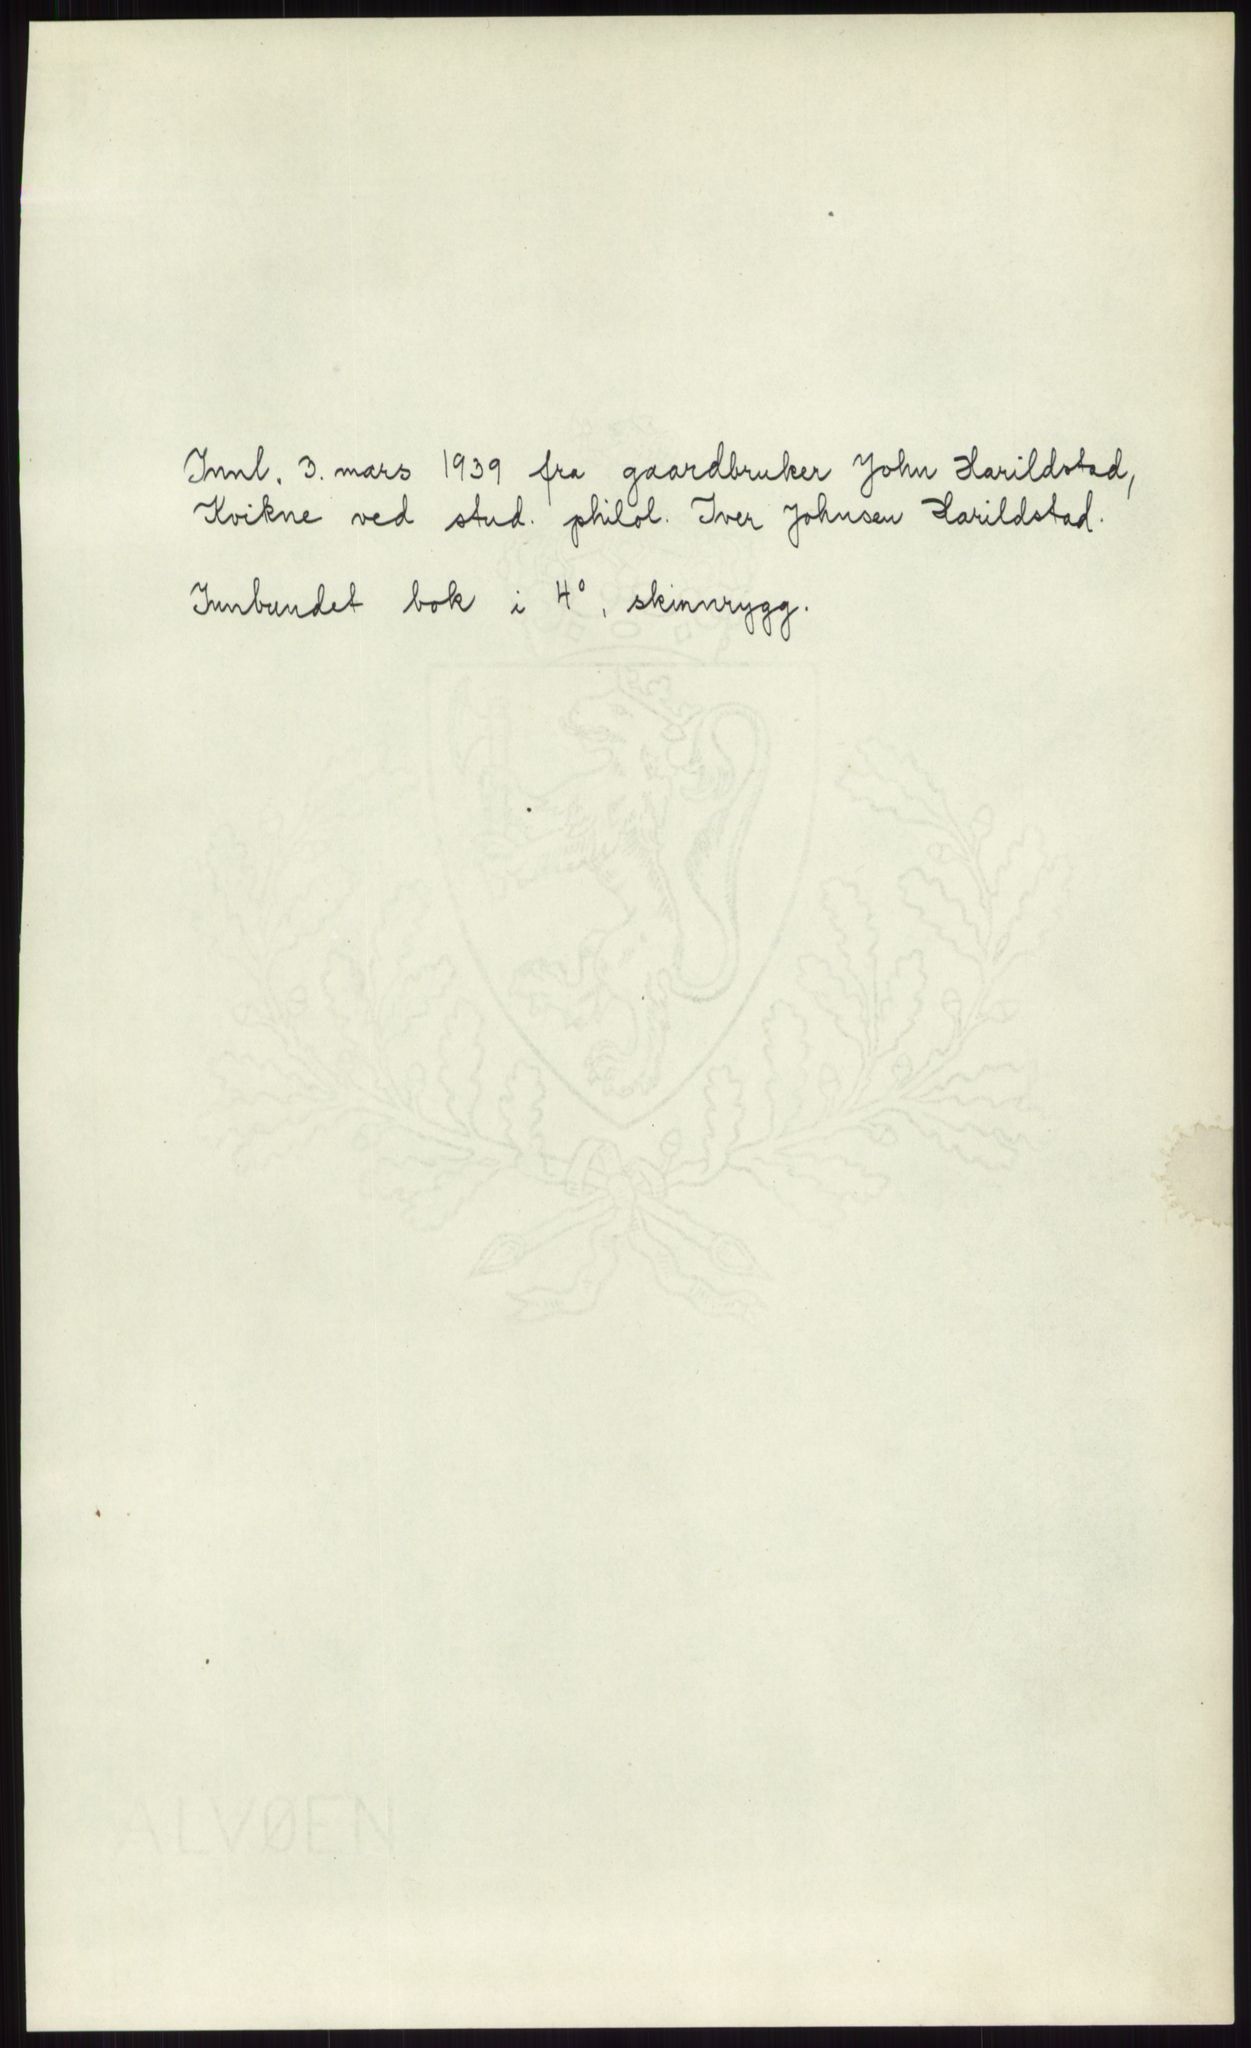 Innl. 3. mars 1939 fra gaardbruker John Harildstad,
Kvikne ved stud. philol. Iver Johnsen Harildstad.
Innbundet bok i 4°, skinnrygg.
ALVØEN